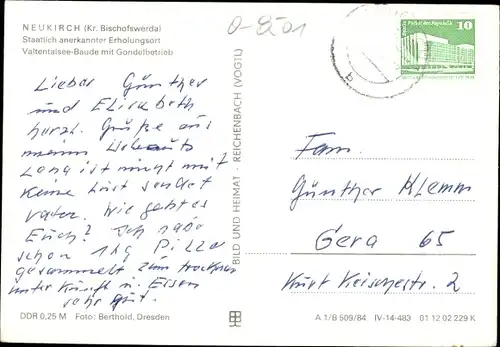 NEUKIRCH (Kr. Bischofswerda)
Staatlich anerkannter Erholungsort
Valtentalsee-Baude mit Gondelbetrieb
10
Lieber Günther
und Elisabeth
herzl. Grüße aus
meinem
Lang ist nicht mit
Keine Lust sendet
Vater. Wie geht es
Euch? Ich habe
schon 1 kg Pilze
gesammelt zum trocknen
unterkunft u. Essen
sehr gut.
BILD UND HEIMAT · REICHENBACH (VOGTL)
Fam.
Günther Klemm
Gera 65
Kurt 2
DDR 0,25 M Foto: Berthold, Dresden
A 1/B 509/84 IV-14-483 01 12 02 229 K